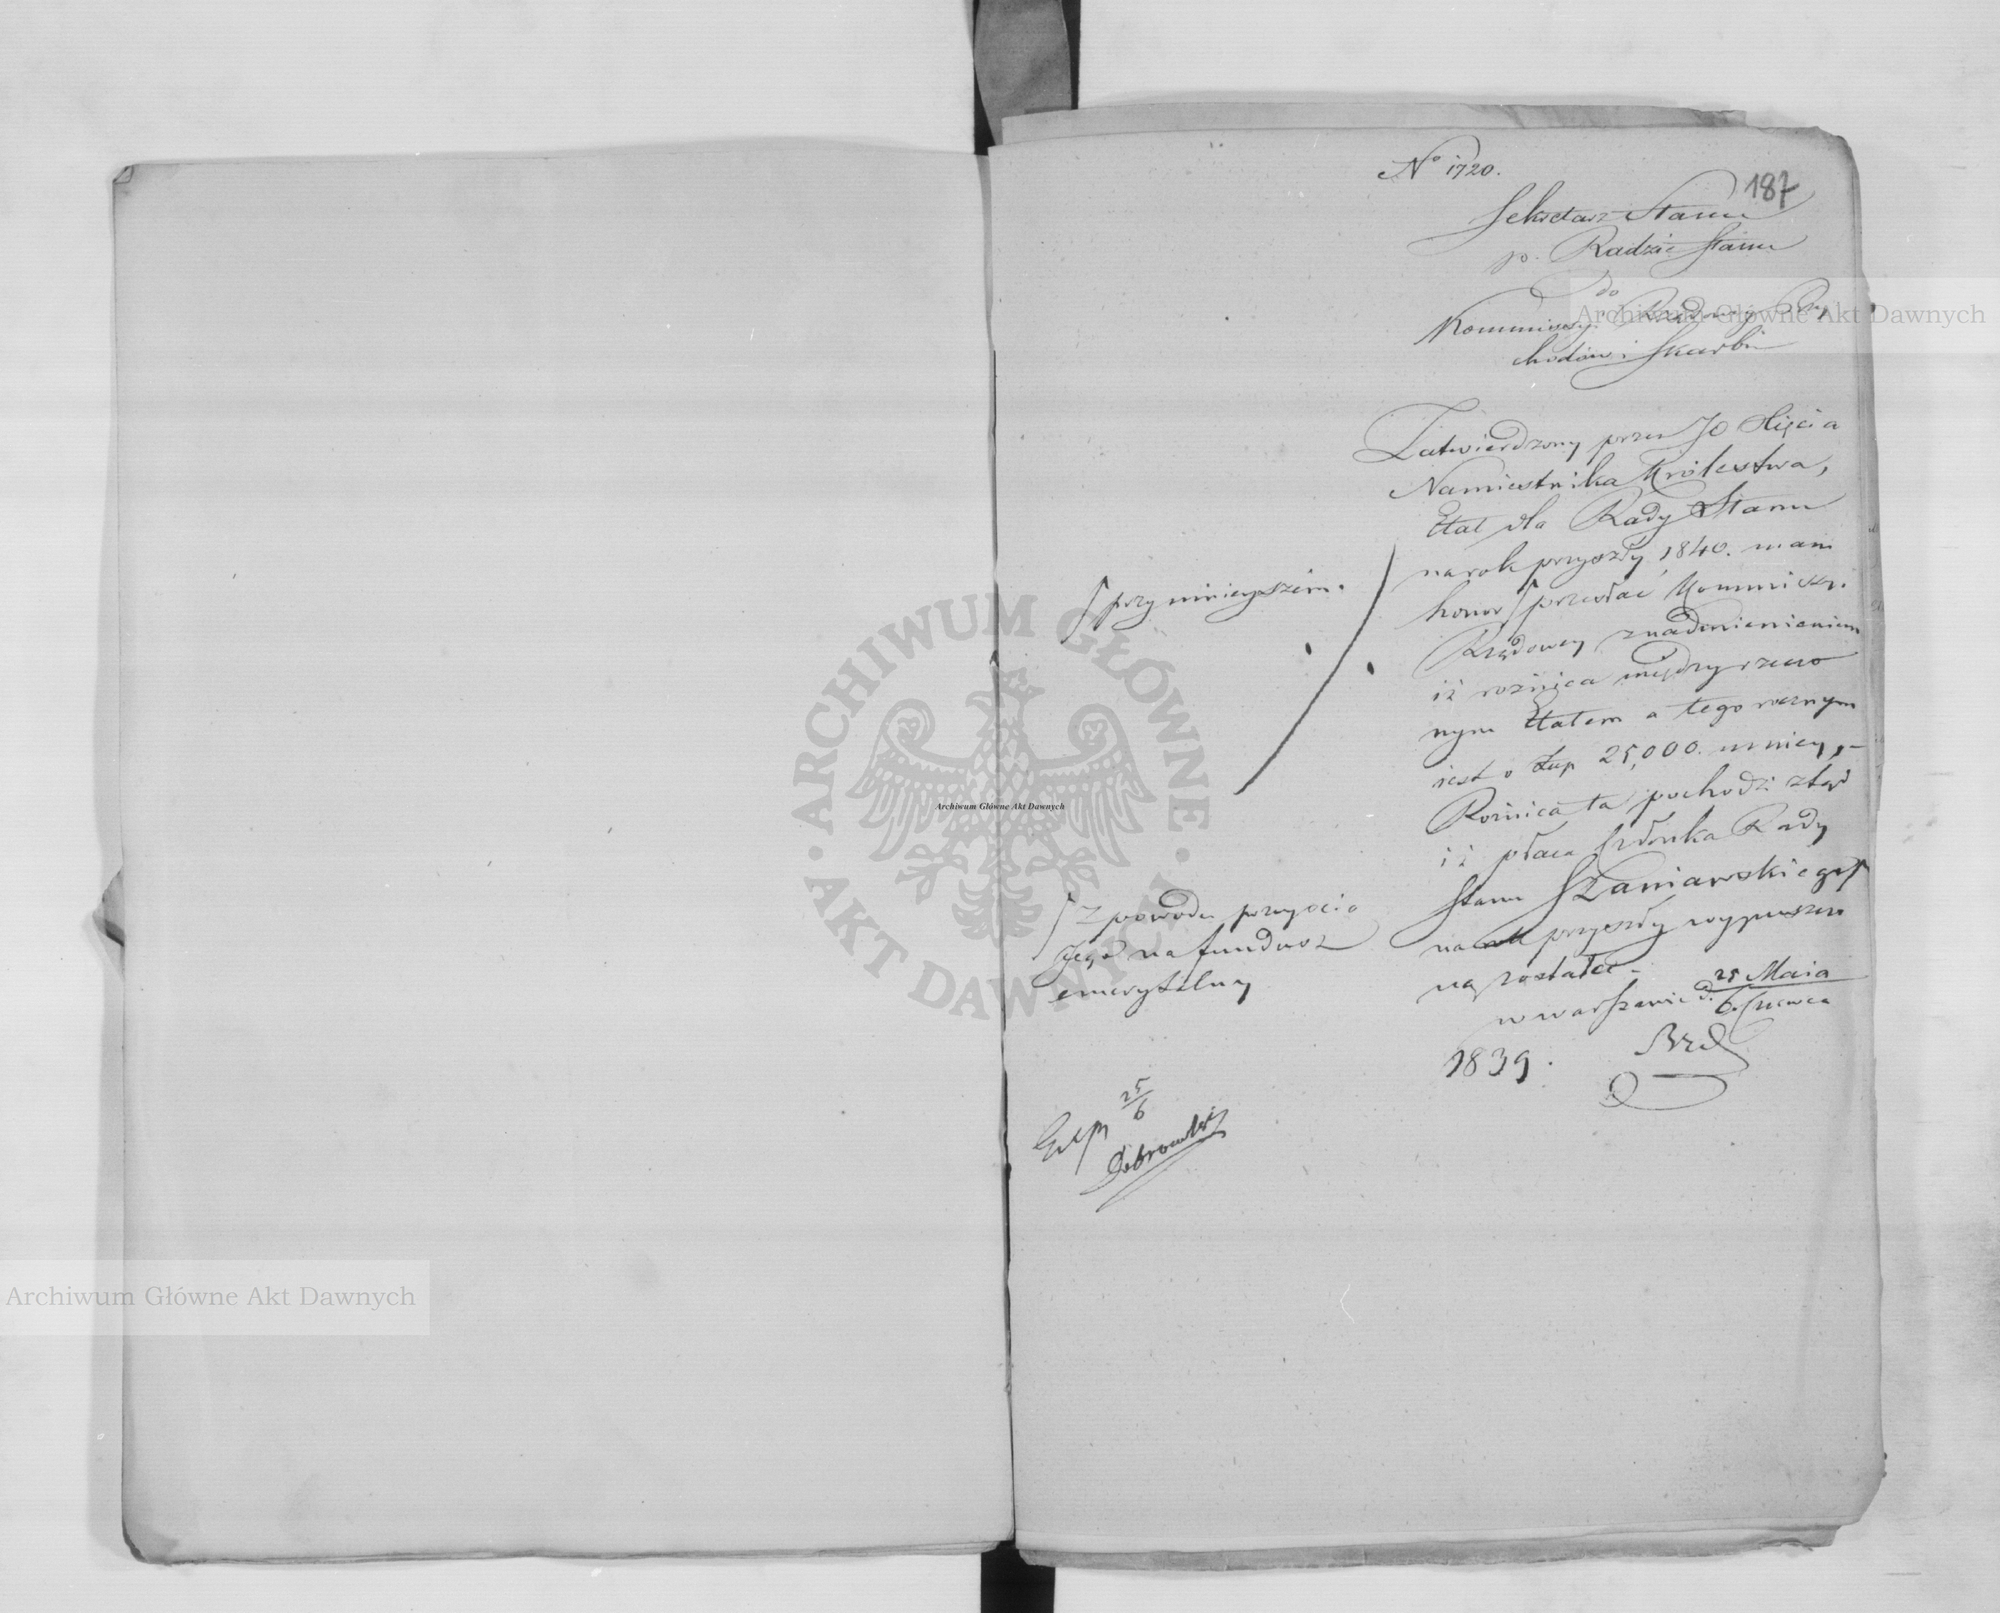 No 1720.
187
Sekretarz Stanu
p. Radzie Stanu
do
Kommissyi Rządowey Przy
chodów i Skarbu
Zatwierdzony przez JO Xięcia
Namiestnika Królestwa,
Etat dla Rady Stanu
na rok przyszły 1840. mam
honor ⌠ przesłać Kommissyi
Rządowey z nadmienieniem
iż roznica między rzeczo
nym Etatem a tegorocznym
iest o Złp 25,000. mniey,-
Roznica ta pochodzi ztąd
iż płaca Członka Rady
Stanu Szaniawskiego ⌠
na rok przyszły wypuszczo
ną została.-
w Warszawie d. 25 Maia
6. Czerwca
1839.
⌠ przy ninieyszem.
⌠ z powodu przeyscia
Jego na fundusz
emerytalny
Exp 25/6
Dobrowolski
Archiwum Główne Akt Dawnych
Archiwum Główne Akt Dawnych
Archiwum Główne Akt Dawnych
ARCHIWUM GŁÓWNE
AKT DAWNYCH